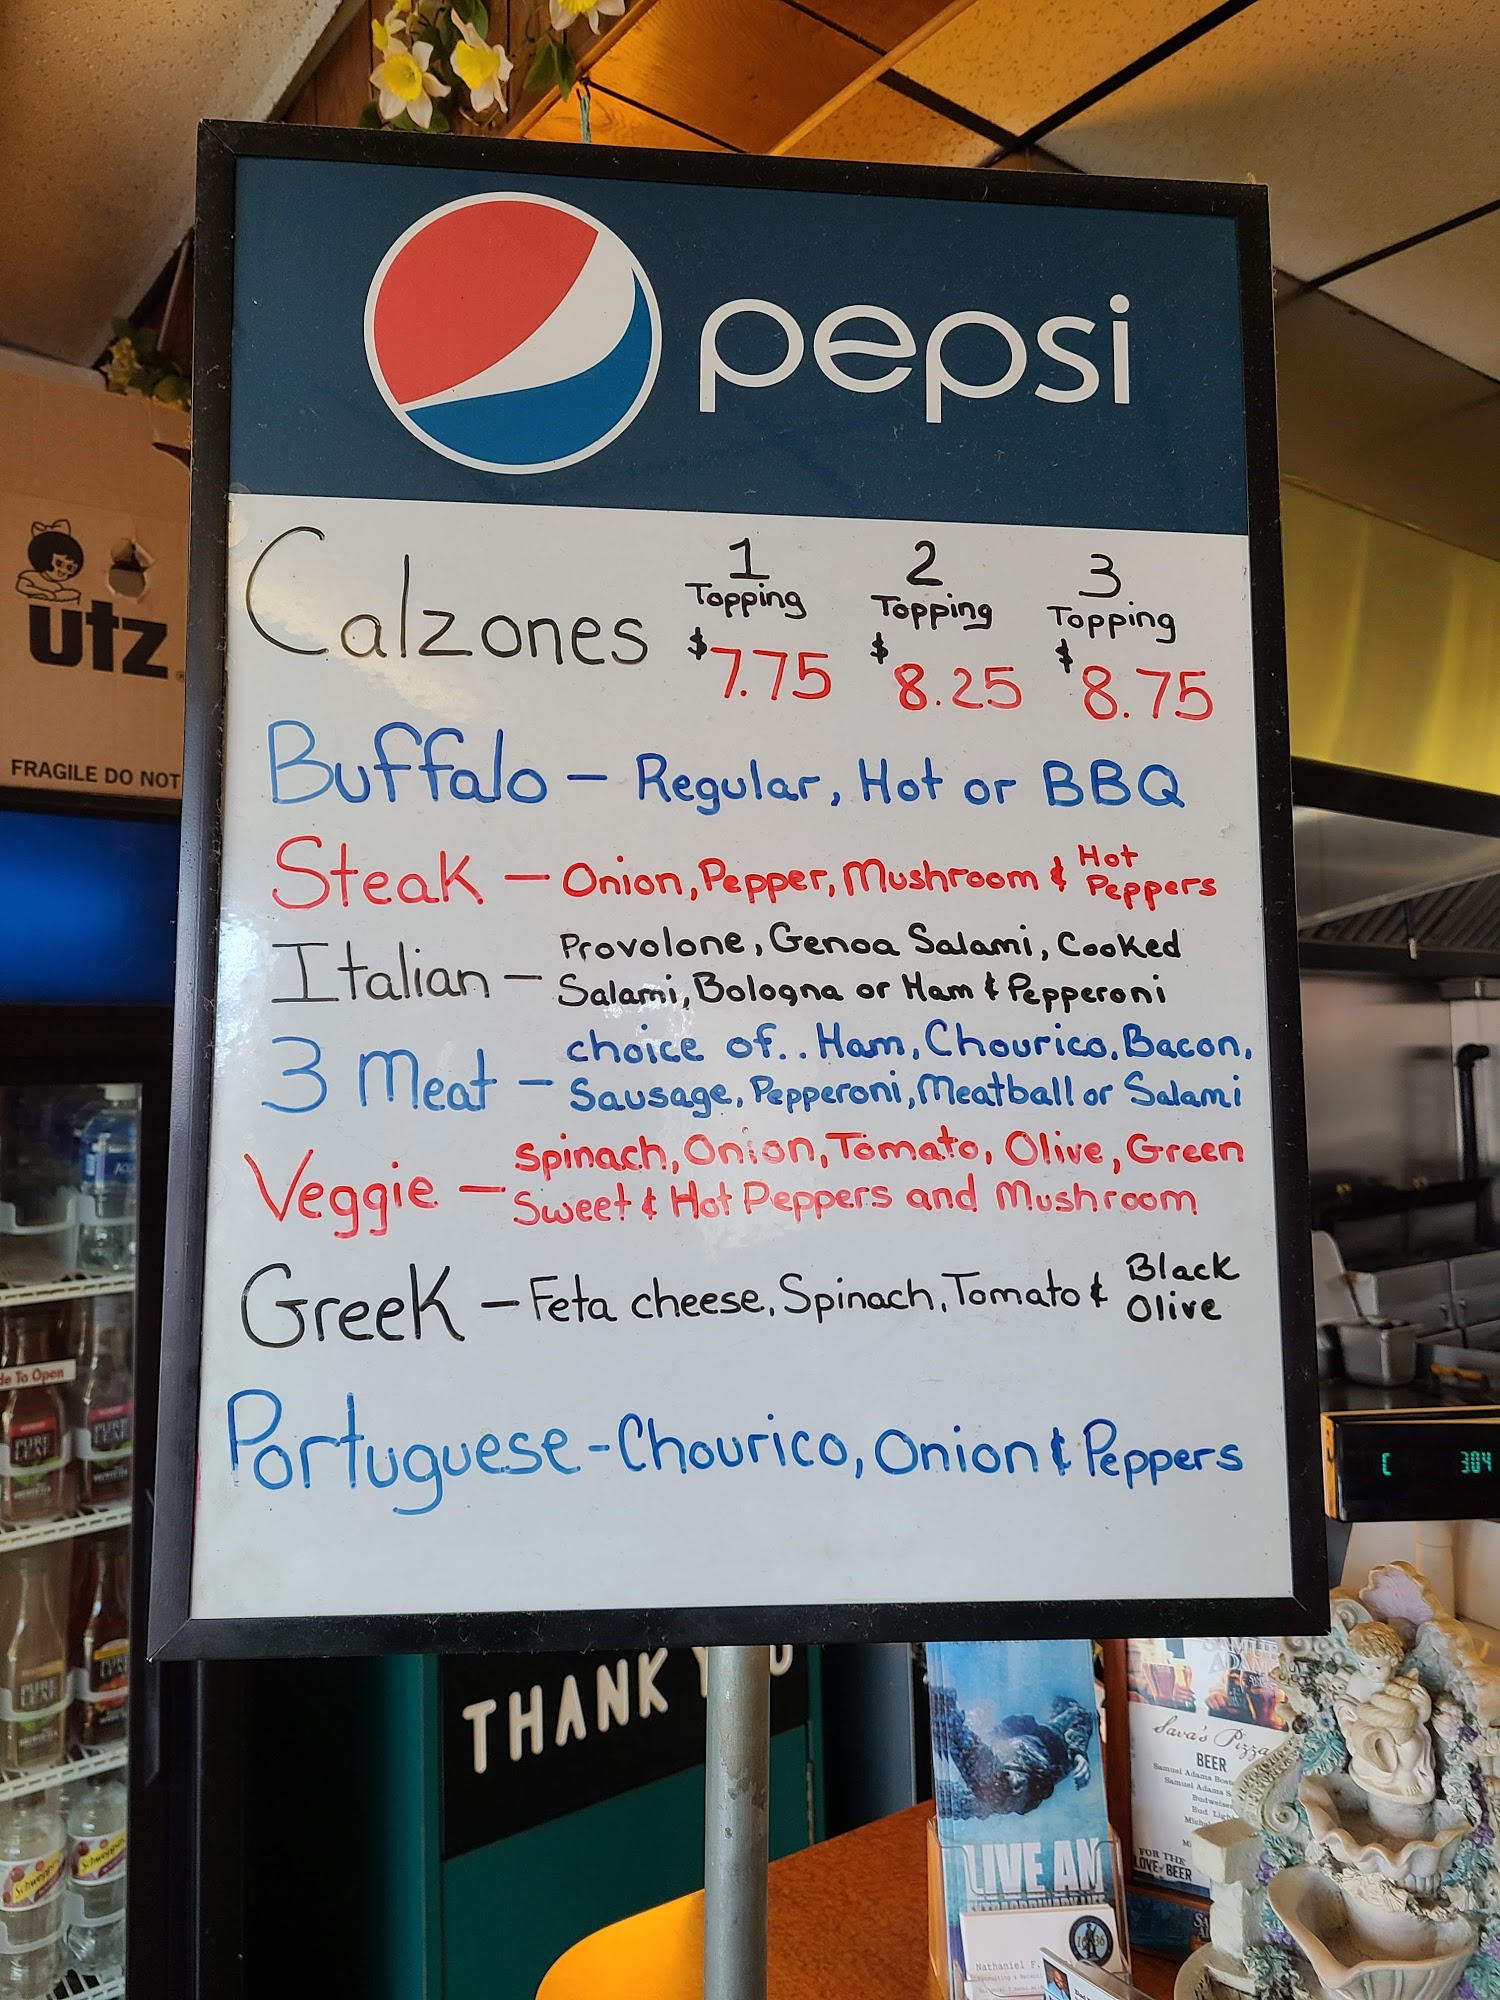 pepsi
Calzones
1 Topping $7.75
2 Topping $8.25
3 Topping $8.75
Buffalo - Regular, Hot or BBQ
Steak - Onion, Pepper, Mushroom & Hot Peppers
Italian - Provolone, Genoa Salami, Cooked
Salami, Bologna or Ham & Pepperoni
3 Meat - choice of.. Ham, Chourico, Bacon,
Sausage, Pepperoni, Meatball or Salami
Veggie - Spinach, Onion, Tomato, Olive, Green
Sweet & Hot Peppers and Mushroom
Greek - Feta cheese, Spinach, Tomato & Black Olive
Portuguese - Chourico, Onion & Peppers
utz
FRAGILE DO NOT
To Open
PURE LEAF
PURE LEAF
Schweppes
Schweppes
THANK
304
LIVE AN
EXTRAORDINARY LIFE
Nathaniel F.
SAMUEL ADAMS
Sava's Pizza
BEER
Samuel Adams
Samuel Adams
Budweiser
Bud
FOR THE
LOVE of BEER